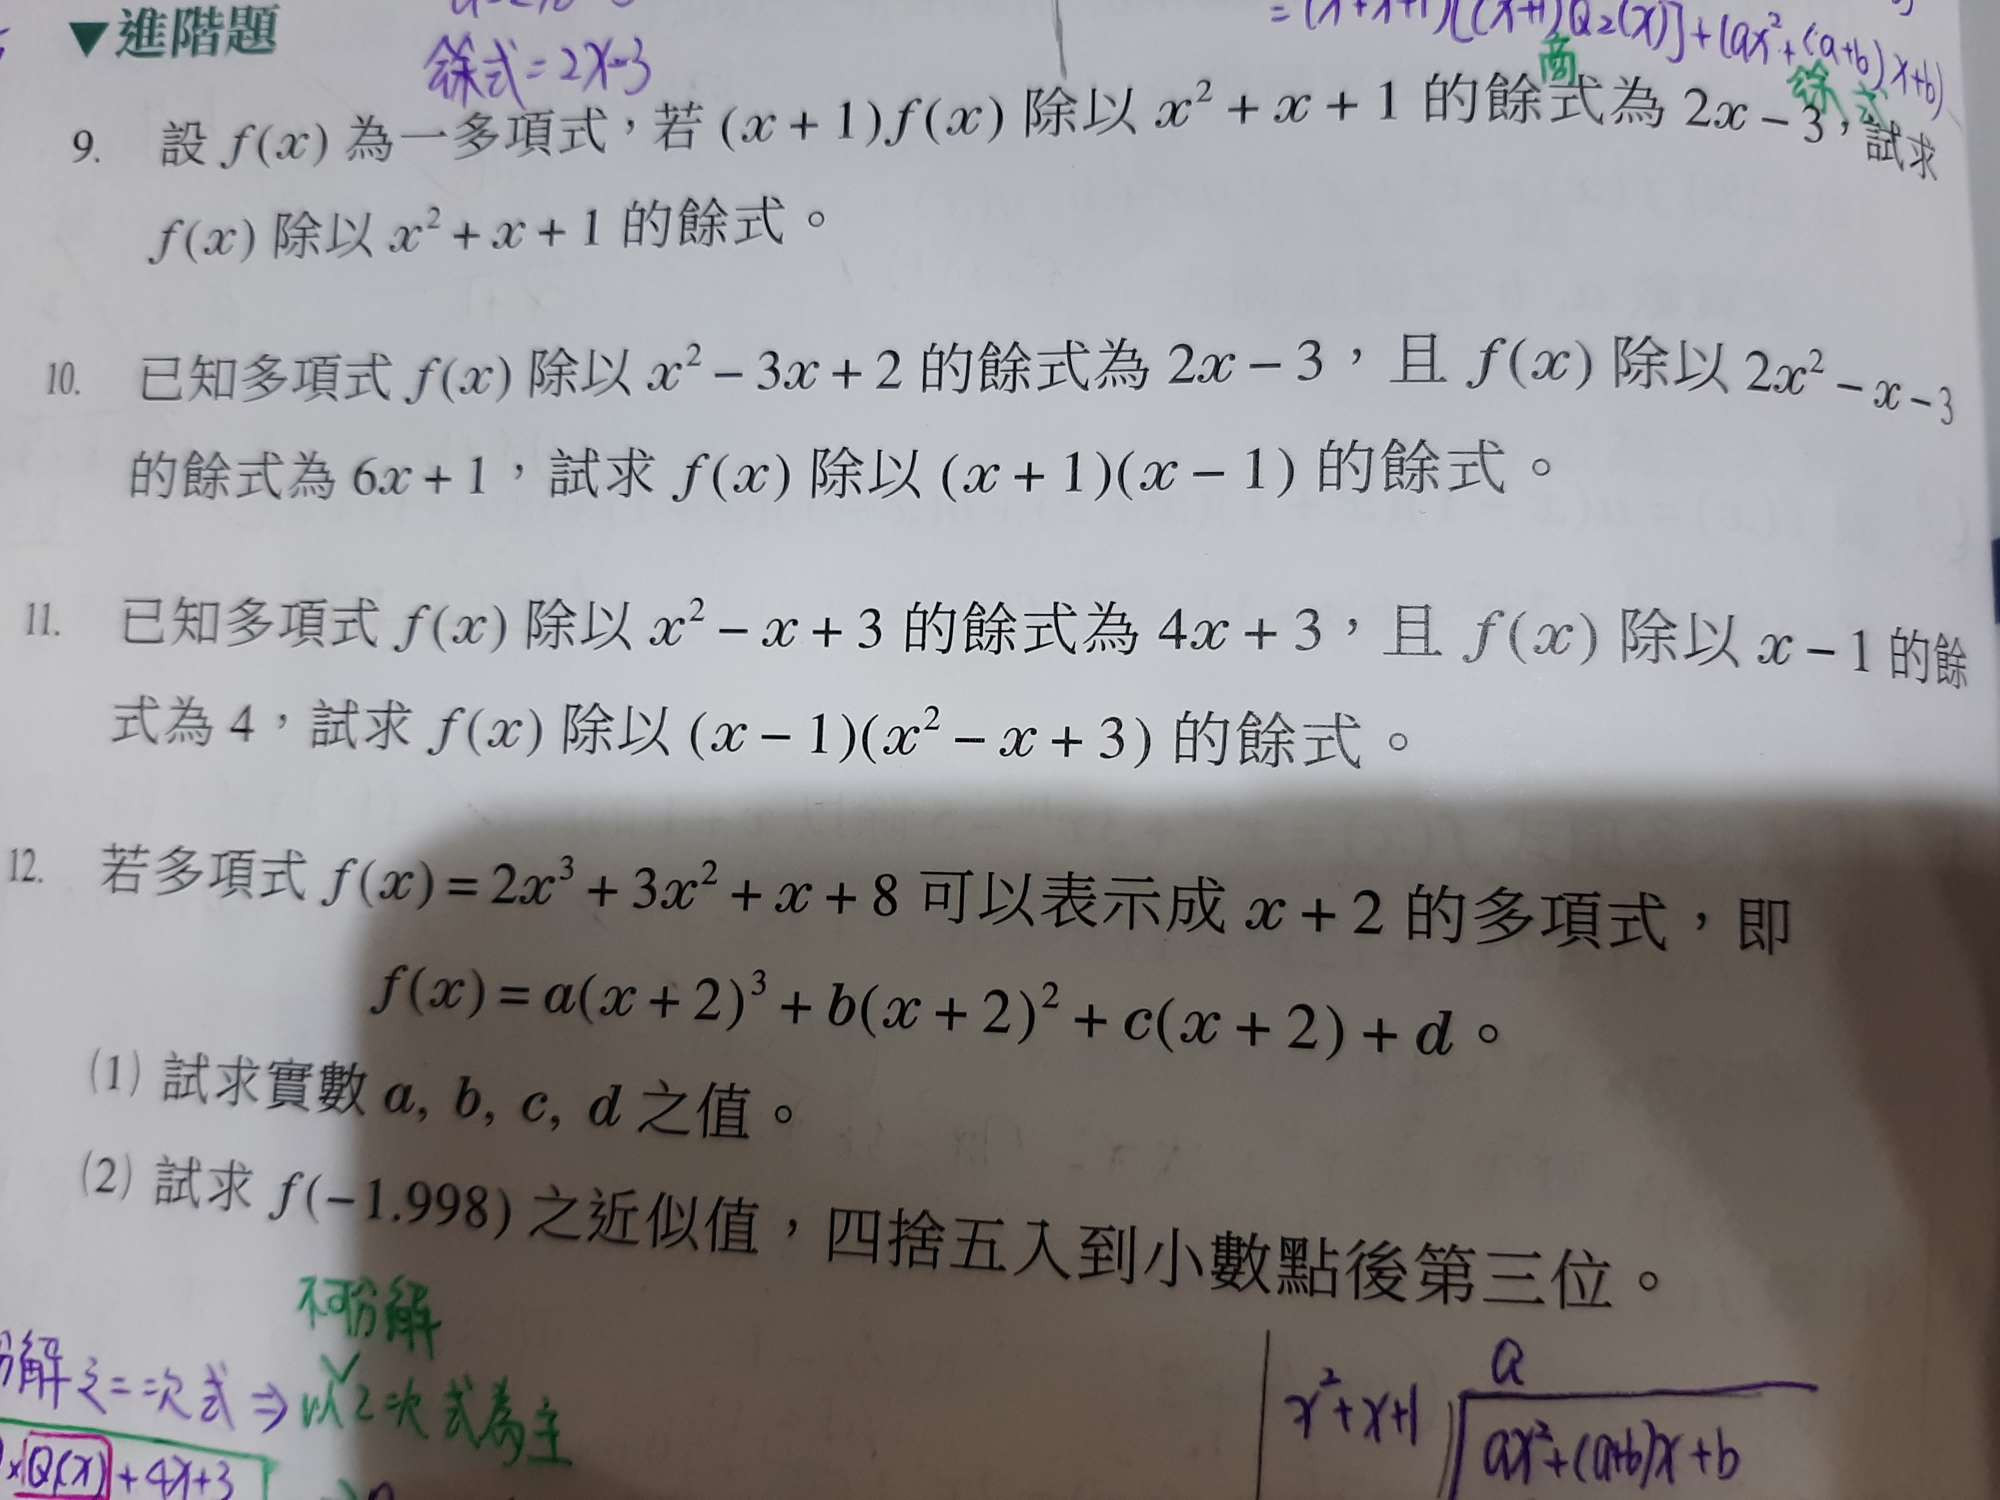 ▼進階題
餘式=2x-3
[(x+1)Q₂(x)]+(ax²+(a+b)x+b)
商
餘式
9. 設 f(x) 為一多項式，若 (x+1)f(x) 除以 x²+x+1 的餘式為 2x-3，試求
f(x) 除以 x²+x+1 的餘式。
10. 已知多項式 f(x) 除以 x²-3x+2 的餘式為 2x-3，且 f(x) 除以 2x²-x-3
的餘式為 6x+1，試求 f(x) 除以 (x+1)(x-1) 的餘式。
11. 已知多項式 f(x) 除以 x²-x+3 的餘式為 4x+3，且 f(x) 除以 x-1 的餘
式為 4，試求 f(x) 除以 (x-1)(x²-x+3) 的餘式。
12. 若多項式 f(x)=2x³+3x²+x+8 可以表示成 x+2 的多項式，即
f(x)=a(x+2)³+b(x+2)²+c(x+2)+d。
(1) 試求實數 a, b, c, d 之值。
(2) 試求 f(-1.998) 之近似值，四捨五入到小數點後第三位。
不可分解
解之二次式⇒以2次式為主
Q(x)+4x+3
a
x²+x+1
ax²+(a+b)x+b